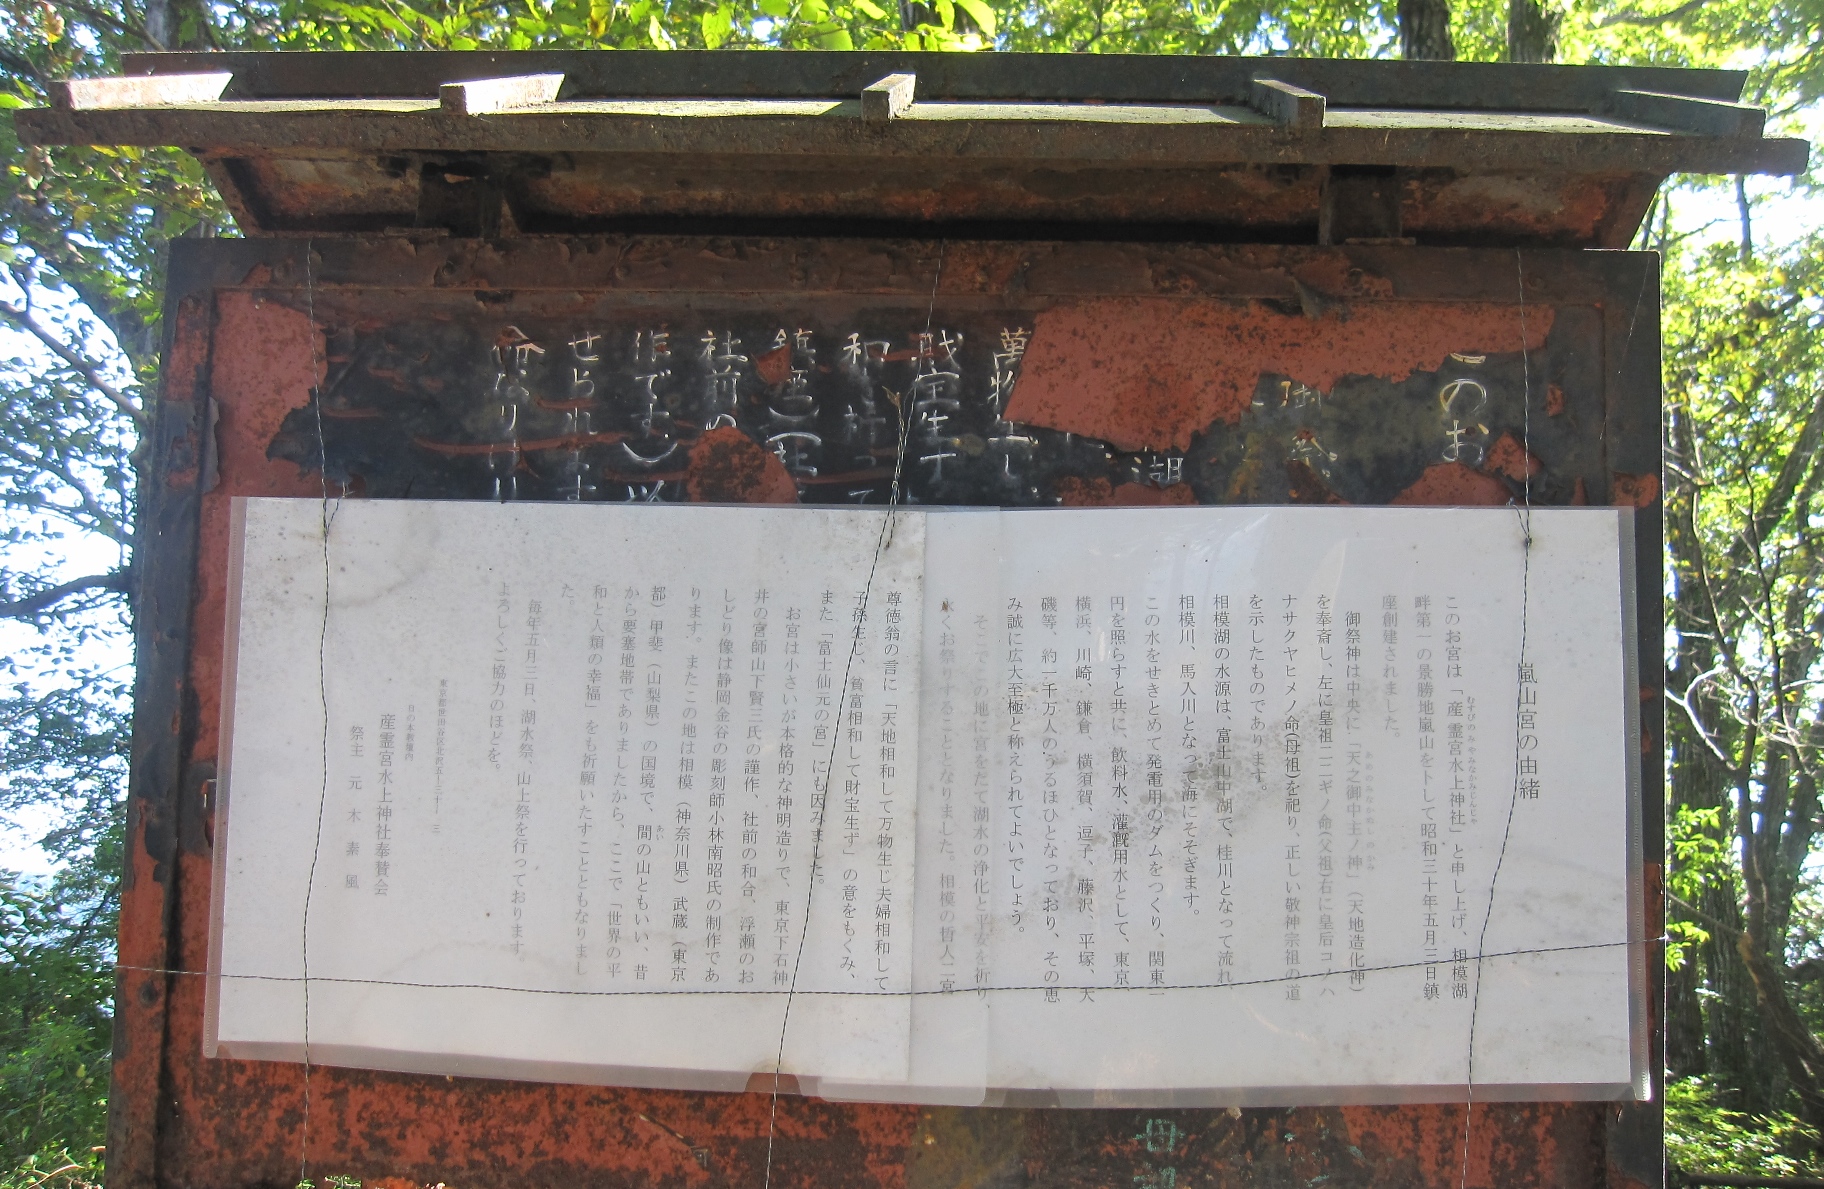 のお
御祭
湖
萬物生じ
財宝生ず
和
社前の
作です。）以
せられます
嵐山宮の由緒
このお宮は「産霊宮水上神社」と申し上げ、相模湖
むすびのみやみなかみじんじゃ
畔第一の景勝地嵐山をトして昭和三十年五月三日鎮
座創建されました。
御祭神は中央に「天之御中主ノ神」（天地造化神）
あめのみなかぬしのかみ
を奉斎し、左に皇祖ニニギノ命(父祖)右に皇后コノハ
ナサクヤヒメノ命(母祖)を祀り、正しい敬神宗祖の道
を示したものであります。
相模湖の水源は、富士山中湖で、桂川となって流れ
相模川、馬入川となって海にそそぎます。
この水をせきとめて発電用のダムをつくり、関東一
円を照らすと共に、飲料水、灌漑用水として、東京、
横浜、川崎、鎌倉、横須賀、逗子、藤沢、平塚、大
磯等、約一千万人のうるほひとなっており、その恵
み誠に広大至極と称えられてよいでしょう。
そこでこの地に宮をたて湖水の浄化と平安を祈り、
永くお祭りすることとなりました。相模の哲人二宮
尊徳翁の言に「天地相和して万物生じ夫婦相和して
子孫生じ、貧富相和して財宝生ず」の意をもくみ、
また「富士仙元の宮」にも因みました。
お宮は小さいが本格的な神明造りで、東京下石神
井の宮師山下賢三氏の謹作、社前の和合、浮瀬のお
しどり像は静岡金谷の彫刻師小林南昭氏の制作であ
ります。またこの地は相模（神奈川県）武蔵（東京
都）甲斐（山梨県）の国境で、間の山ともいい、昔
あい
から要塞地帯でありましたから、ここで「世界の平
和と人類の幸福」をも祈願いたすことともなりまし
た。
毎年五月三日、湖水祭、山上祭を行っております。
よろしくご協力のほどを。
東京都世田谷区北沢五ー三十ー三
日の本教壇内
産霊宮水上神社奉賛会
祭主 元木素風
母